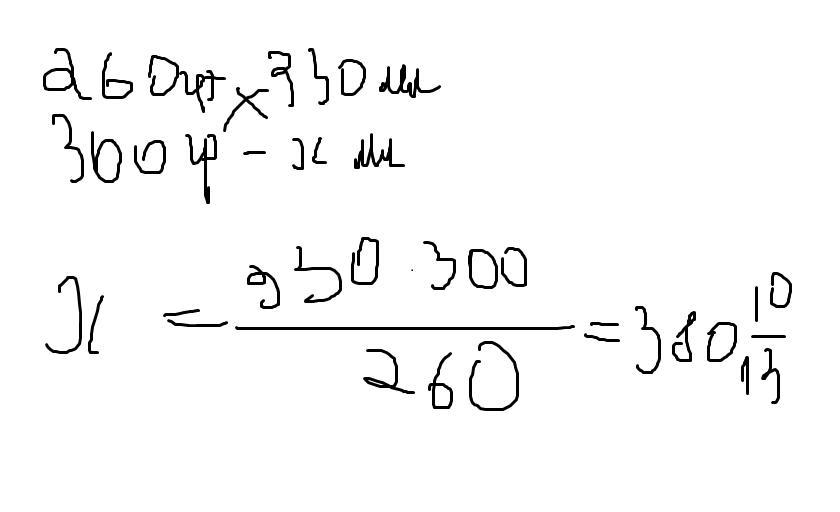 260 гр × 330 мл
300 гр - x мл
x = 330 · 300 / 260 = 380 10/13